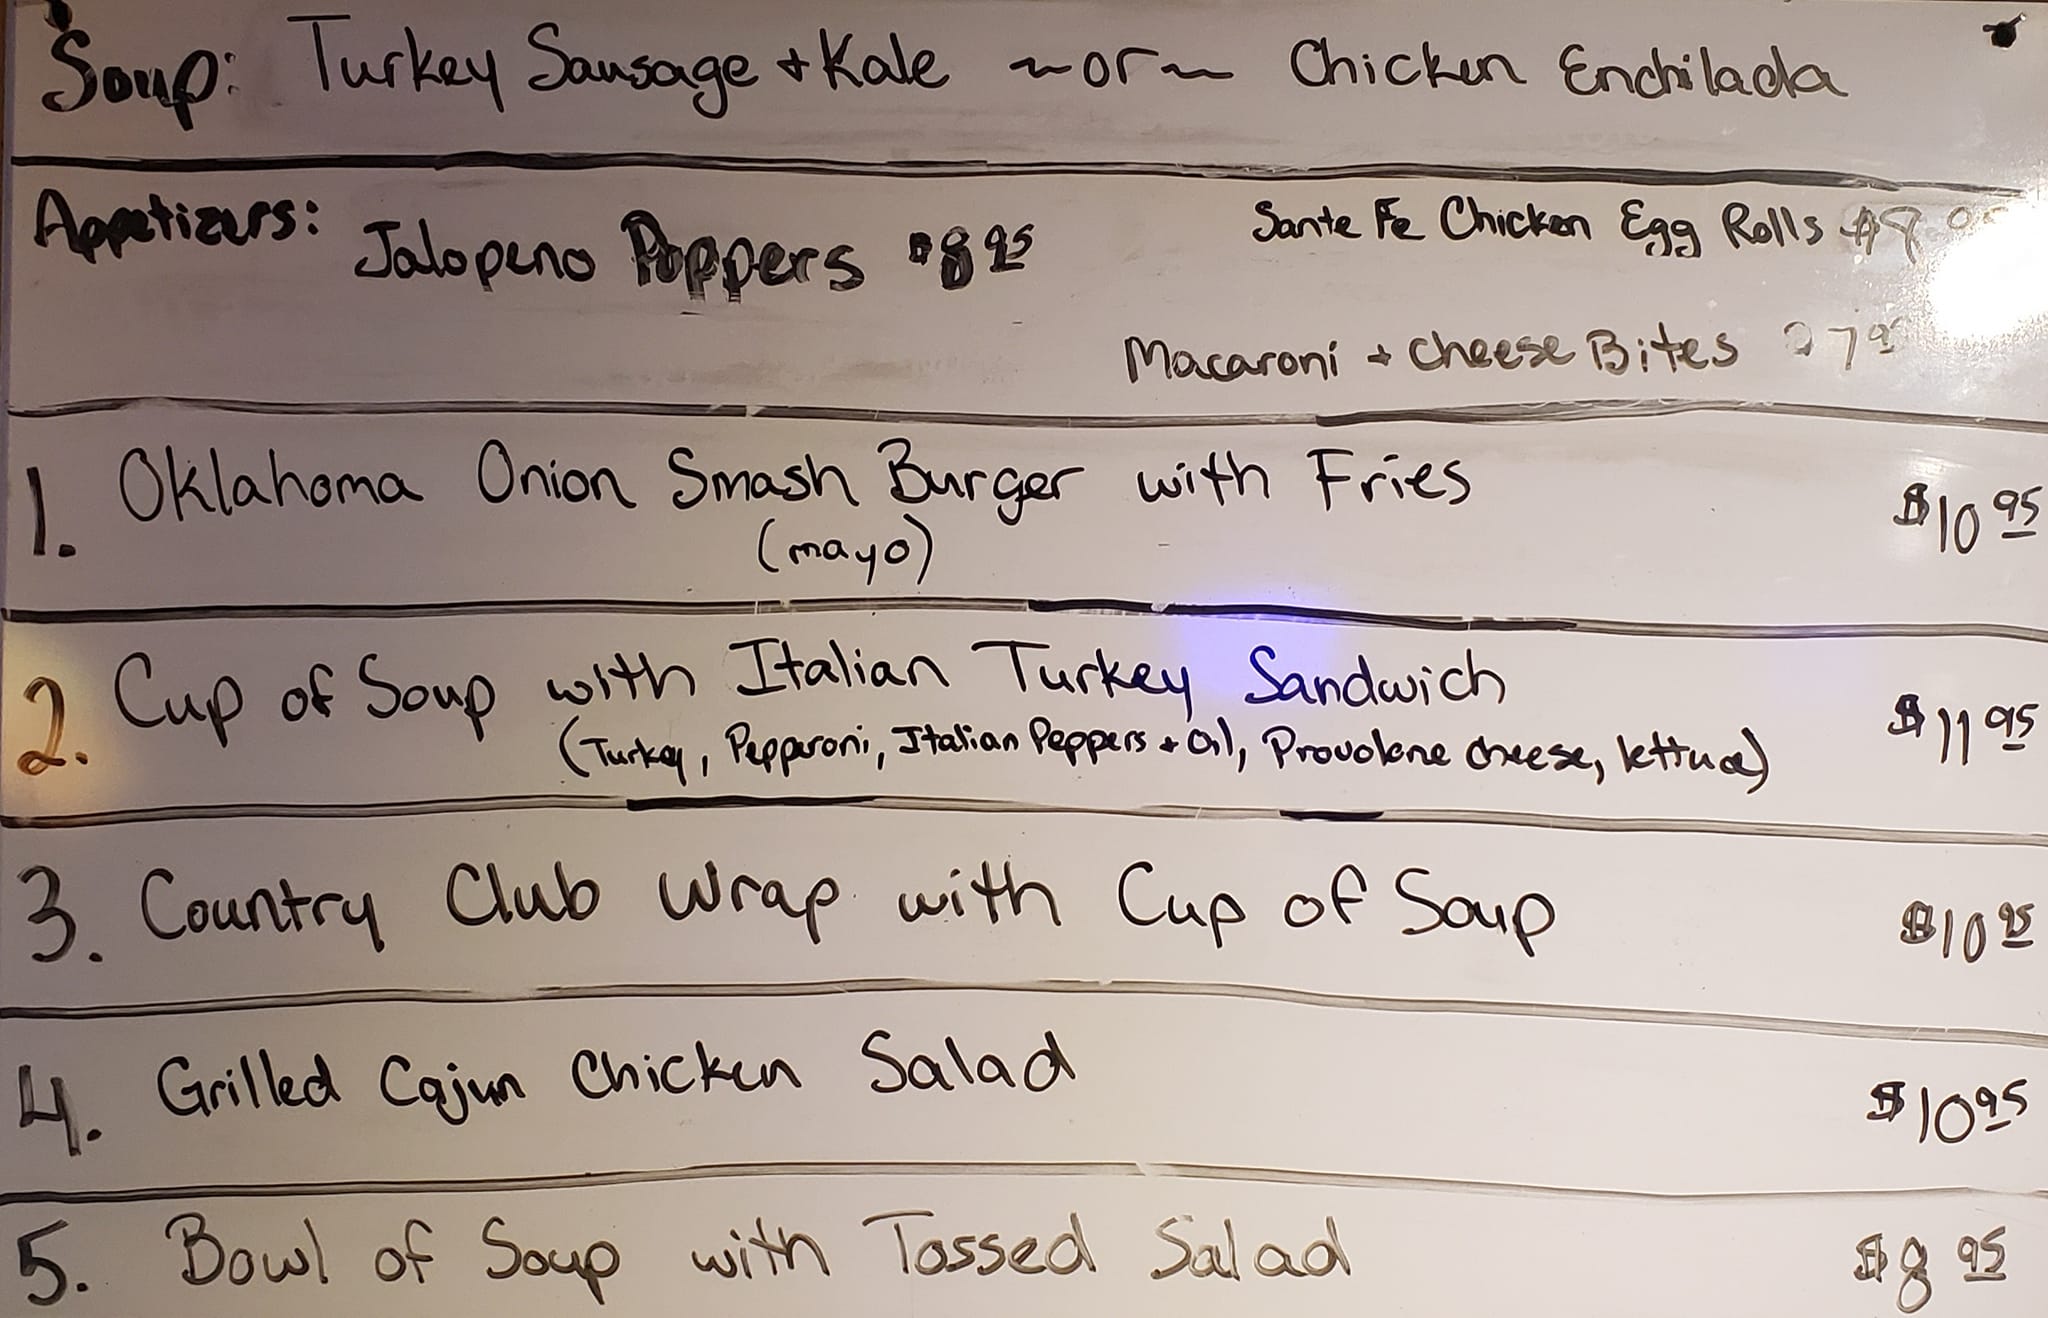 Soup: Turkey Sausage + Kale ~or~ Chicken Enchilada
Appetizers: Jalopeno Poppers $8.95
Sante Fe Chicken Egg Rolls
Macaroni + Cheese Bites
1. Oklahoma Onion Smash Burger with Fries $10.95
(mayo)
2. Cup of Soup with Italian Turkey Sandwich $11.95
(Turkey, Pepparoni, Italian Peppers + Oil, Provolone cheese, lettuce)
3. Country Club Wrap with Cup of Soup $10.95
4. Grilled Cajun Chicken Salad $10.95
5. Bowl of Soup with Tossed Salad $8.95